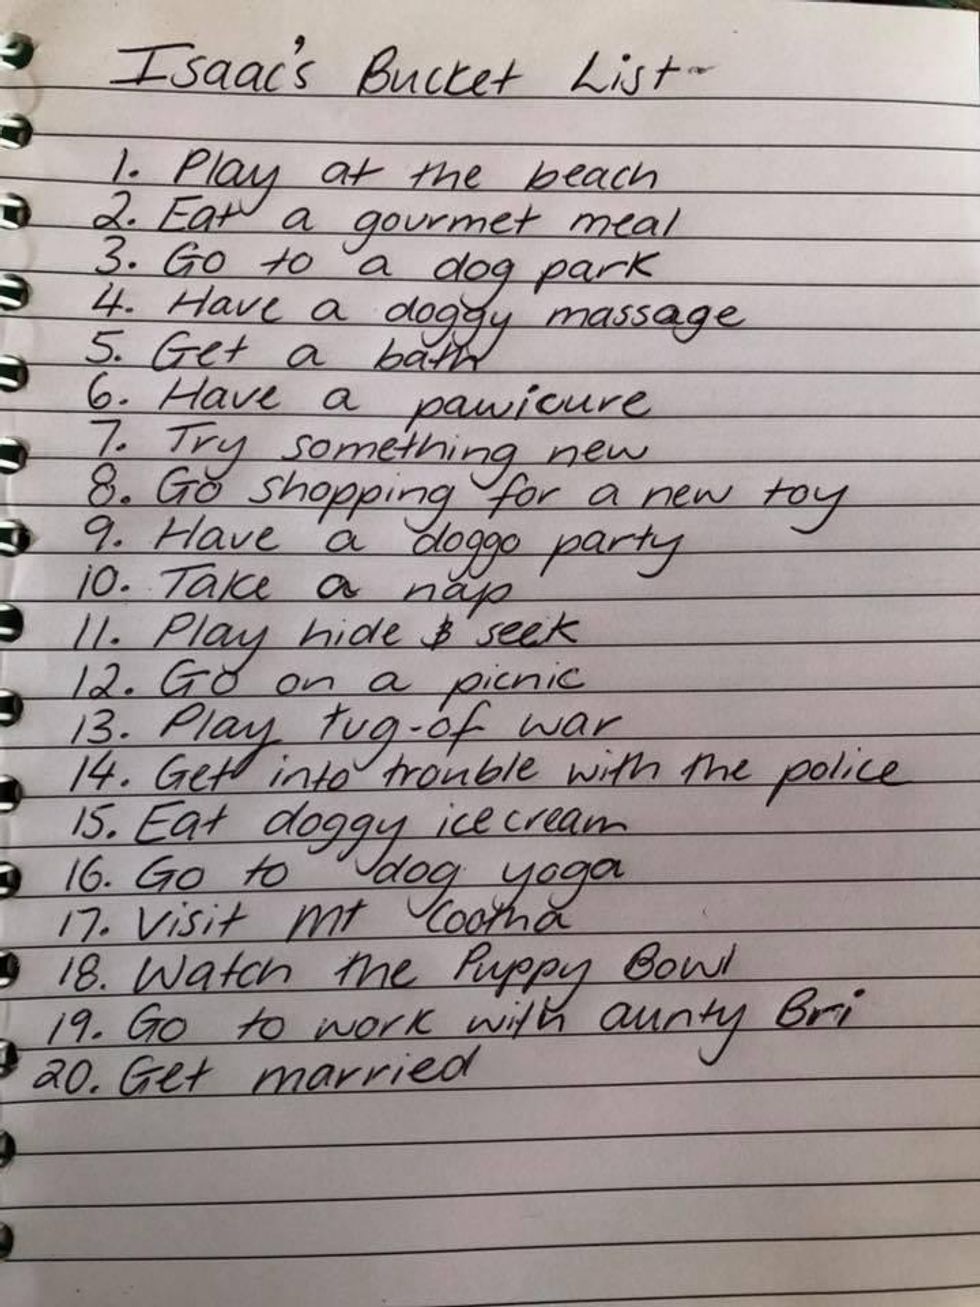 Isaac's Bucket List
1. Play at the beach
2. Eat a gourmet meal
3. Go to a dog park
4. Have a doggy massage
5. Get a bath
6. Have a pawicure
7. Try something new
8. Go shopping for a new toy
9. Have a doggo party
10. Take a nap
11. Play hide & seek
12. Go on a picnic
13. Play tug-of war
14. Get into trouble with the police
15. Eat doggy icecream
16. Go to dog yoga
17. Visit Mt Cootha
18. Watch the Puppy Bowl
19. Go to work with aunty Bri
20. Get married